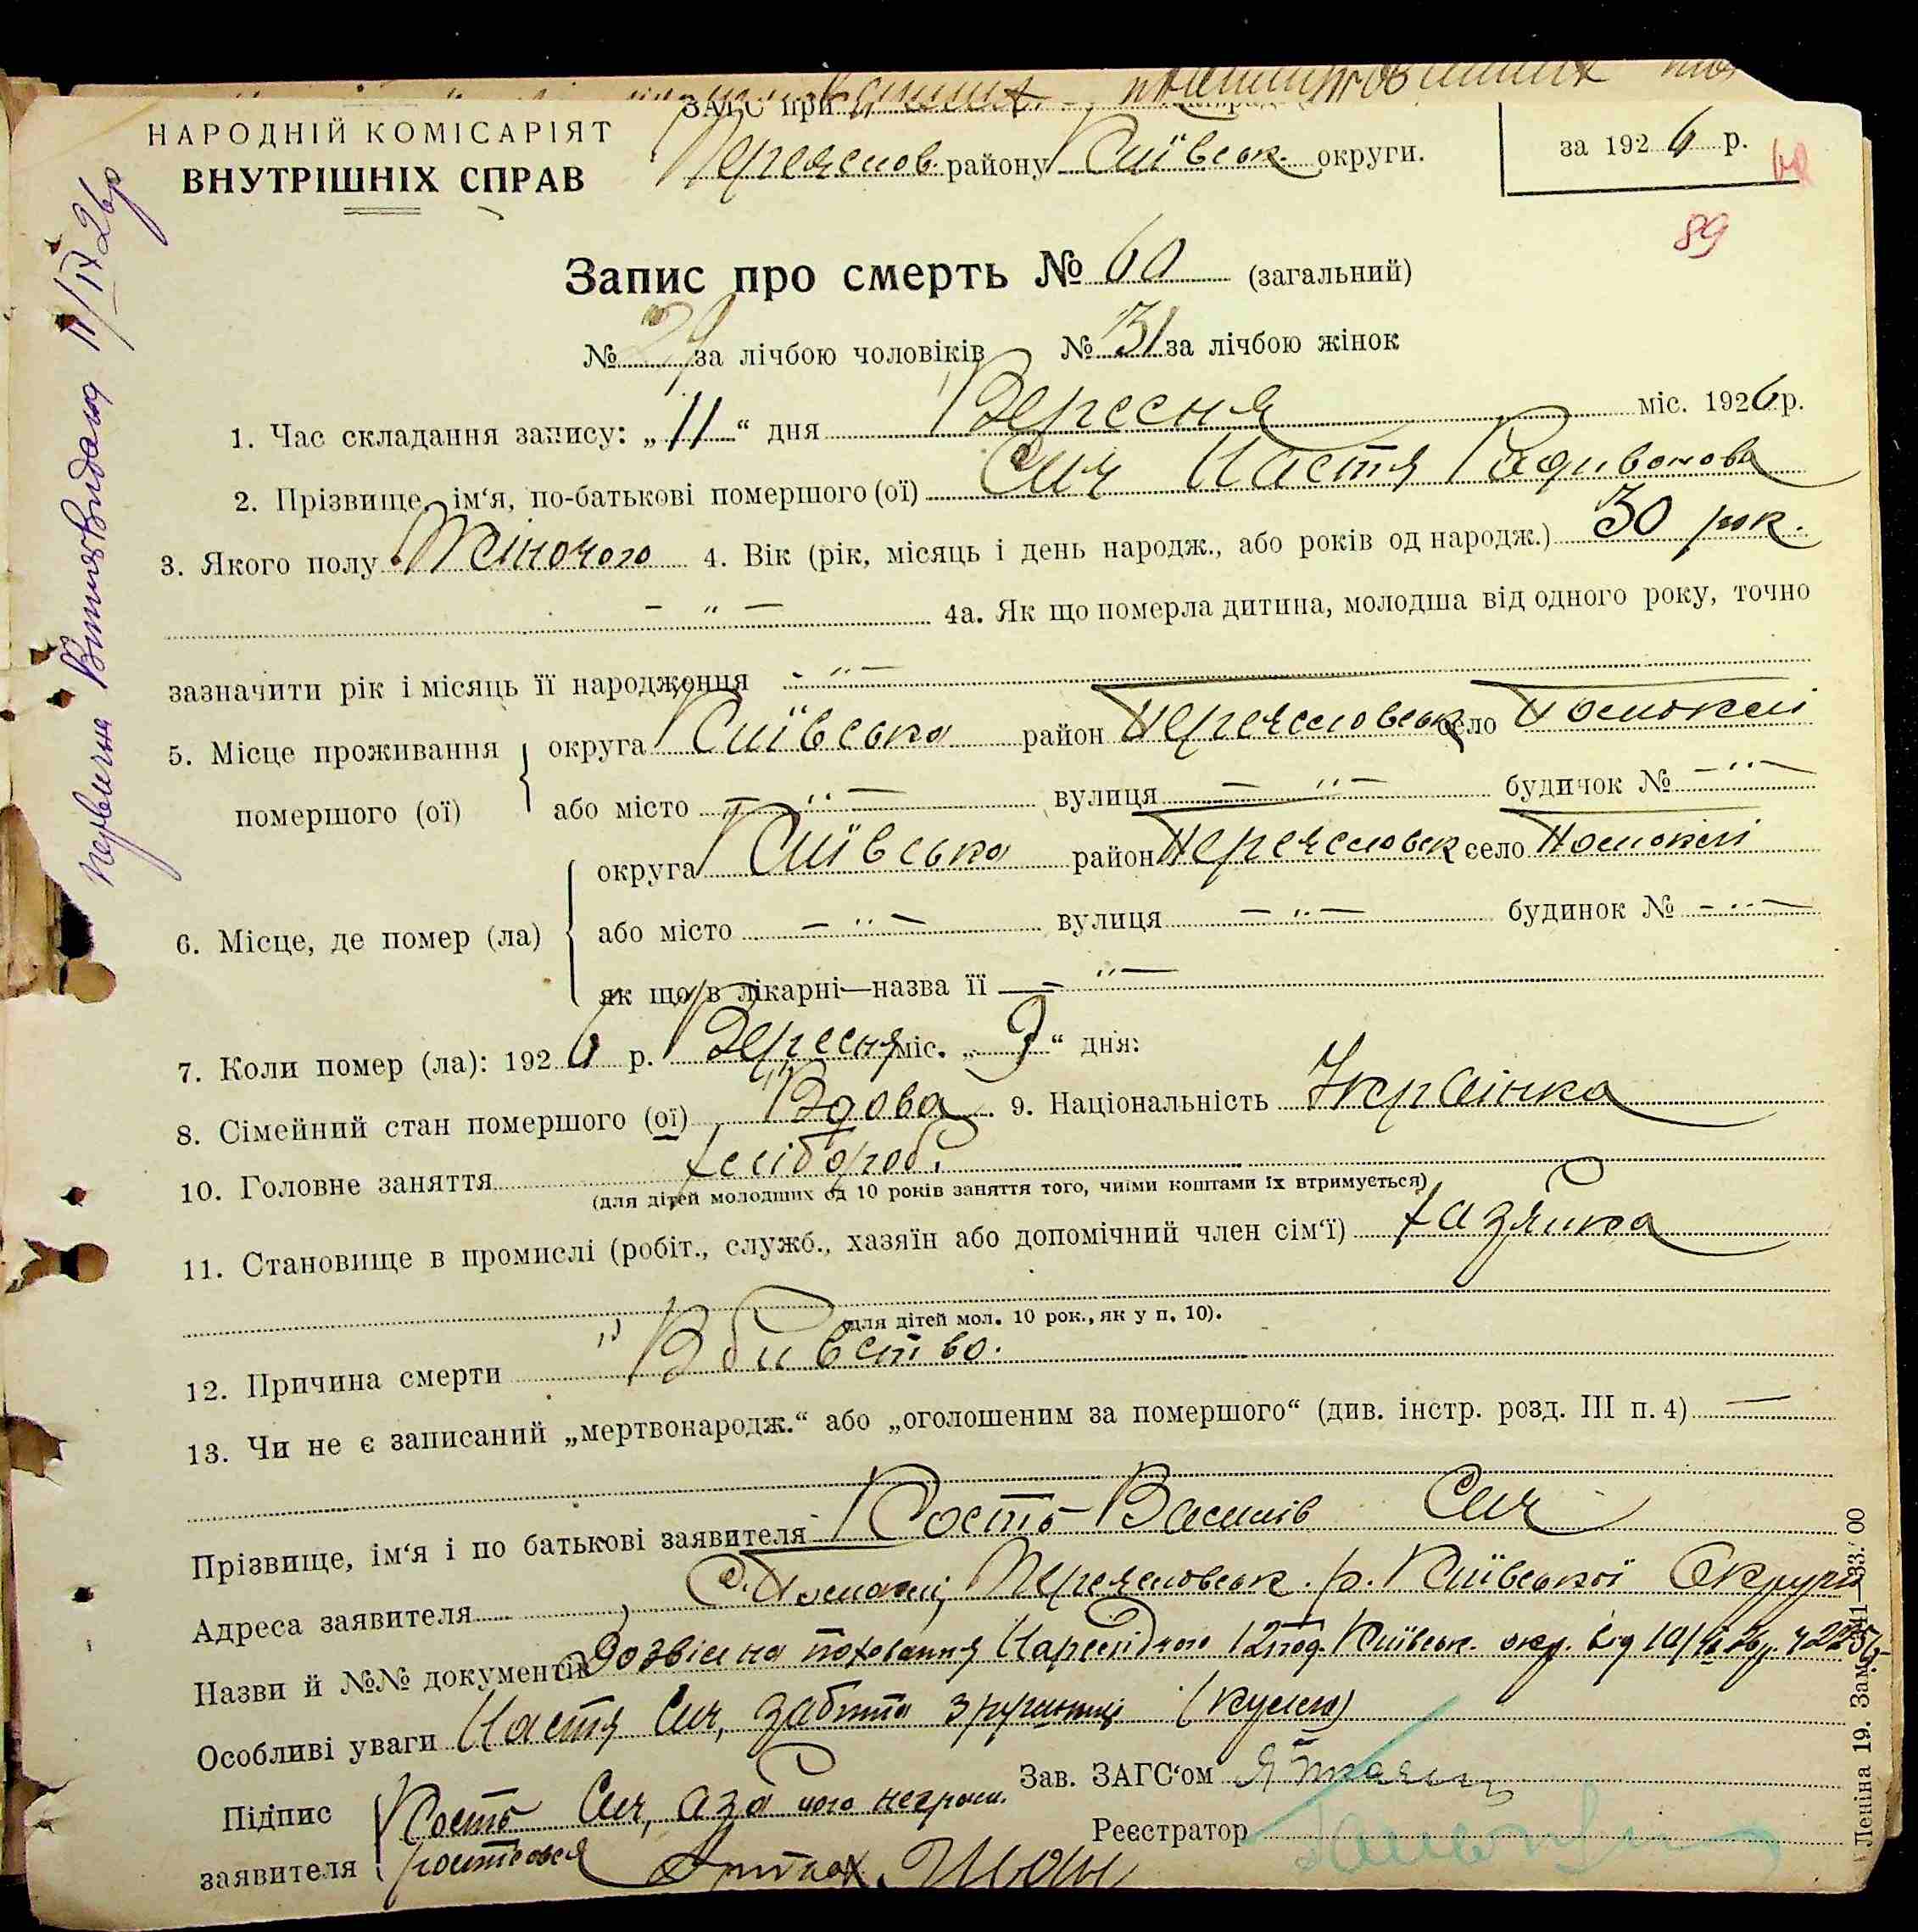 ЗАГС при
НАРОДНІЙ КОМІСАРІЯТ
ВНУТРІШНІХ СПРАВ
Переяслов. району Київськ. округи.
за 1926 р.
60
89
Первична Витяг Видана 11/IX 26р
Запис про смерть № 60 (загальний)
№ 29 за лічбою чоловіків № 31 за лічбою жінок
1. Час складання запису: „11“ дня Вересня міс. 1926 р.
2. Прізвище, ім‘я, по-батькові помершого (ої) Сич Настя Радивонова
3. Якого полу Жіночого 4. Вік (рік, місяць і день народж., або років од народж.) 30 рок.
— „ — 4а. Як що померла дитина, молодша від одного року, точно
зазначити рік і місяць її народження - „ —
5. Місце проживання помершого (ої) округа Київська район Переясловськ село Помоклі
або місто — „ — вулиця — „ — будичок № — „ —
6. Місце, де помер (ла) округа Київська район Переясловськ село Помоклі
або місто — „ — вулиця — „ — будинок № — „ —
як що в лікарні—назва її — „ —
7. Коли помер (ла): 1926 р. Вересня міс. „9“ дня:
8. Сімейний стан помершого (ої) Вдова 9. Національність Українка
10. Головне заняття хлібороб.
(для дітей молодших од 10 років заняття того, чиїми коштами їх втримується)
11. Становище в промислі (робіт., служб., хазяїн або допомічний член сім‘ї) хазяйка
(для дітей мол. 10 рок., як у п. 10).
12. Причина смерти Вбивство.
13. Чи не є записаний „мертвонародж.“ або „оголошеним за помершого“ (див. інстр. розд. III п. 4) —
Прізвище, ім‘я і по батькові заявителя Кость Василів Сич
Адреса заявителя с. Помоклі, Переясловськ. р. Київської Округи
Назви й №№ документів Дозвіл на поховання Нарслідчого 12 под. Київськ. окр. від 10/IX 26р. ч 225
Особливі уваги Настя Сич, забита з рушниці (кулею)
Підпис заявителя Кость Сич, а за його неграм.
розписався
Зав. ЗАГС‘ом
Реєстратор
Леніна 19. Зам.